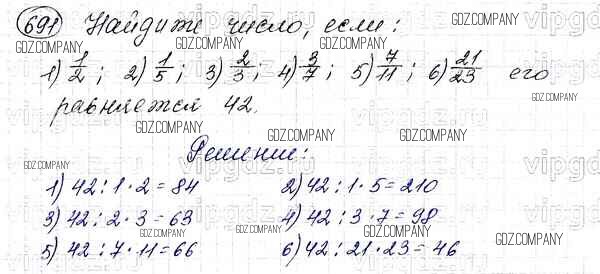 691 Найдите число, если:
1) 1/2; 2) 1/5; 3) 2/3; 4) 3/7; 5) 7/11; 6) 21/23 его
равняется 42.
Решение:
1) 42 : 1 · 2 = 84 2) 42 : 1 · 5 = 210
3) 42 : 2 · 3 = 63 4) 42 : 3 · 7 = 98
5) 42 : 7 · 11 = 66 6) 42 : 21 · 23 = 46
GDZ.COMPANY
vipgdz.ru